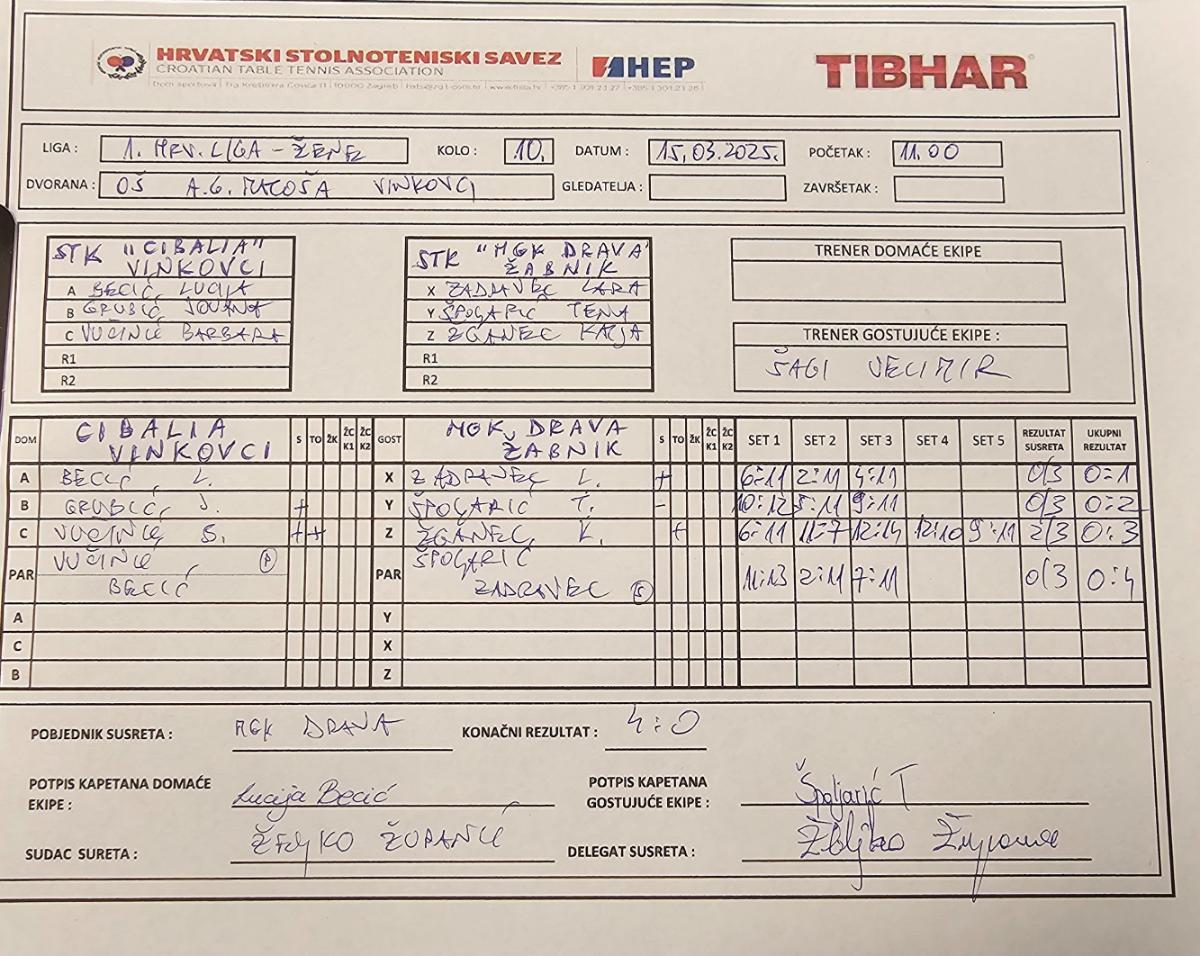 HRVATSKI STOLNOTENISKI SAVEZ
CROATIAN TABLE TENNIS ASSOCIATION
HEP
TIBHAR
LIGA : 1. HRV. LIGA - ŽENE KOLO : 10. DATUM : 15.03.2025. POČETAK : 11.00
DVORANA : OŠ A.G. MATOŠA VINKOVCI GLEDATELJA : ZAVRŠETAK :
STK "CIBALIA"
VINKOVCI
A BECIĆ, LUCIJA
B GRUBIĆ JOVANA
C VUČINIĆ BARBARA
R1
R2
STK "MGK DRAVA"
ŽABNIK
X ZADRAVEC LARA
Y ŠPOLJARIĆ TENA
Z ŽGANEC KATJA
R1
R2
TRENER DOMAĆE EKIPE
TRENER GOSTUJUĆE EKIPE :
ŠAGI VELIMIR
DOM CIBALIA VINKOVCI S TO ŽK ŽC K1 ŽC K2 GOST MGK DRAVA ŽABNIK S TO ŽK ŽC K1 ŽC K2 SET 1 SET 2 SET 3 SET 4 SET 5 REZULTAT SUSRETA UKUPNI REZULTAT
A BECIĆ, L. X ZADRAVEC L. + 6:11 2:11 4:11 0/3 0:1
B GRUBIĆ, J. + Y ŠPOLJARIĆ T. - 10:12 5:11 9:11 0/3 0:2
C VUČINIĆ B. + + Z ŽGANEC, K. + 6:11 11:7 12:14 12:10 9:11 2/3 0:3
PAR VUČINIĆ, (P) PAR ŠPOLJARIĆ
BECIĆ ZADRAVEC (S) 11:13 2:11 7:11 0/3 0:4
A Y
C X
B Z
POBJEDNIK SUSRETA : MGK DRAVA KONAČNI REZULTAT : 4:0
POTPIS KAPETANA DOMAĆE EKIPE : Lucija Becić POTPIS KAPETANA GOSTUJUĆE EKIPE : Špoljarić T
SUDAC SURETA : ŽELJKO ŽUPANIĆ DELEGAT SUSRETA : Željko